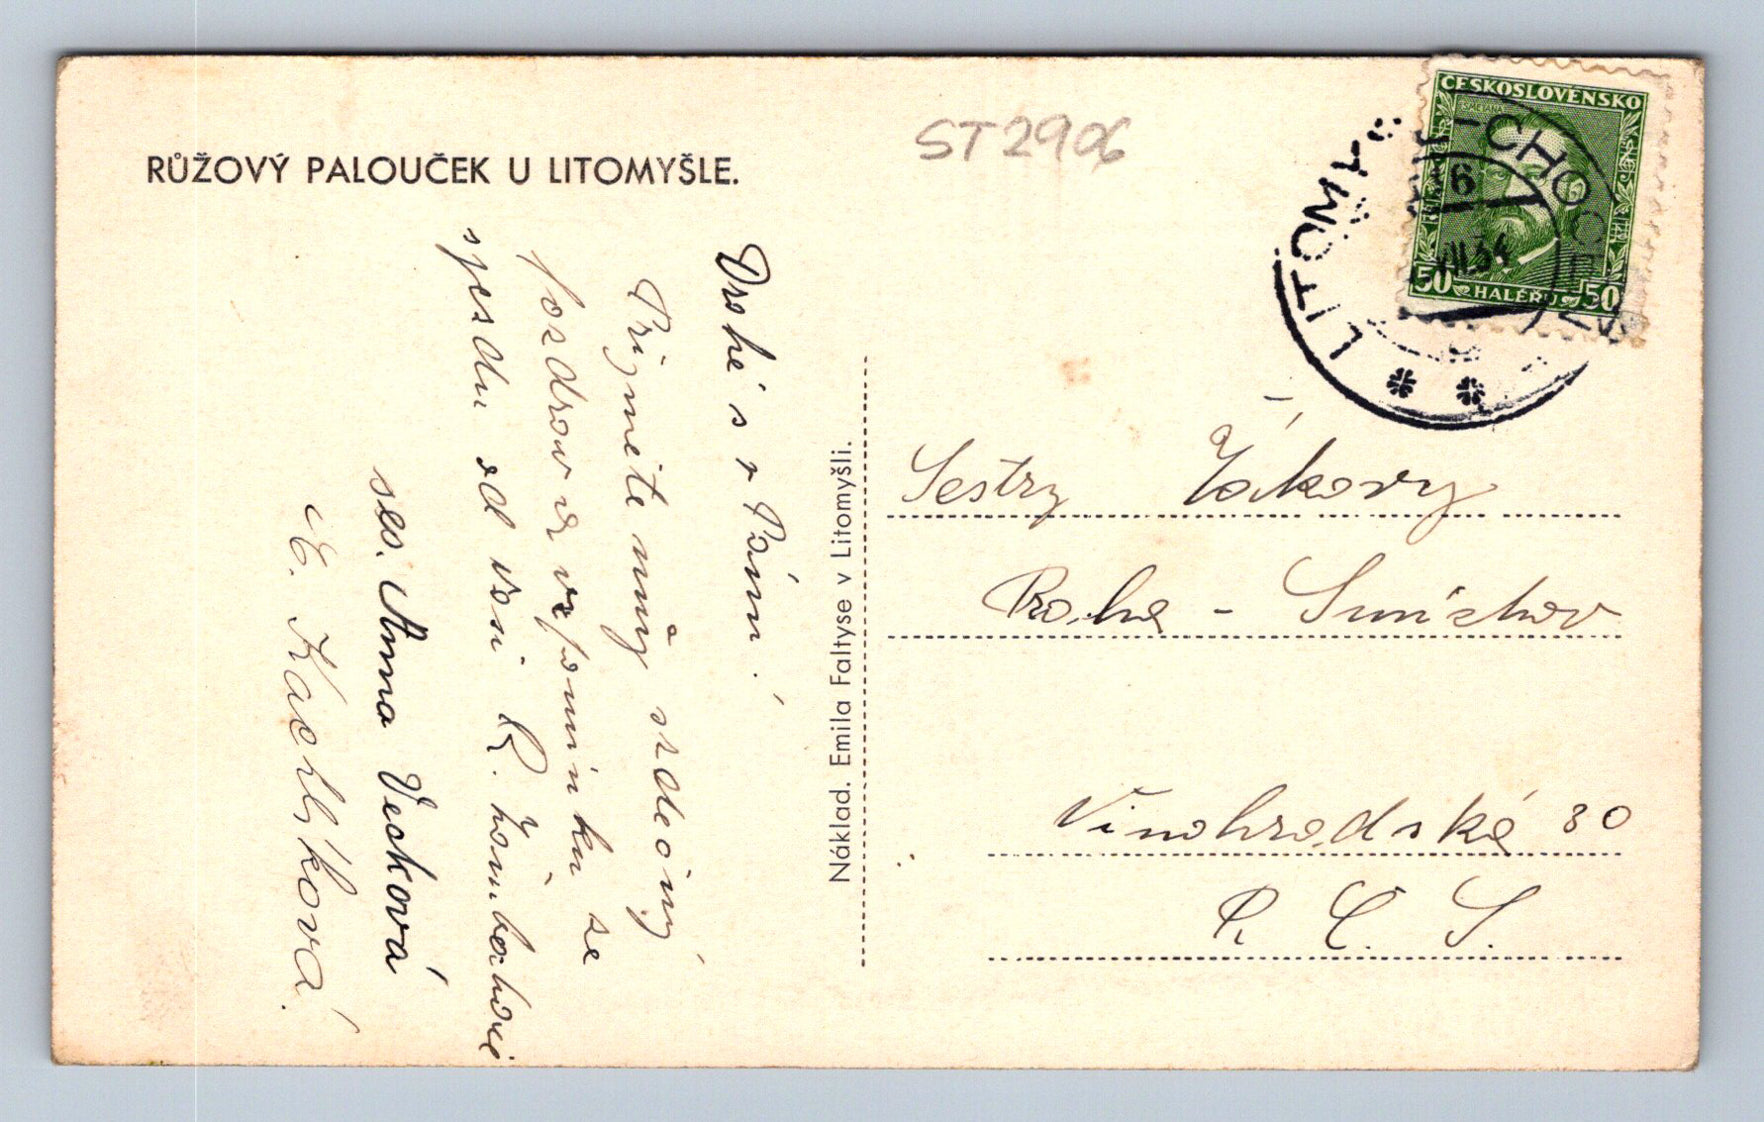 RŮŽOVÝ PALOUČEK U LITOMYŠLE.
ST2906
ČESKOSLOVENSKO
50 HALÉŘŮ 50
LITOMYŠL-CHOCEŇ
6
VII.34
Drahé s v Pánu!
Přijměte můj srdečný
pozdrav a vzpomínku se
sjezdu od
R.
ses. Anna Vesková
E. Kachlíková.
Náklad. Emila Faltyse v Litomyšli.
Sestry Žákovy
Praha - Smíchov
Vinohradská 30
P. Č. S.